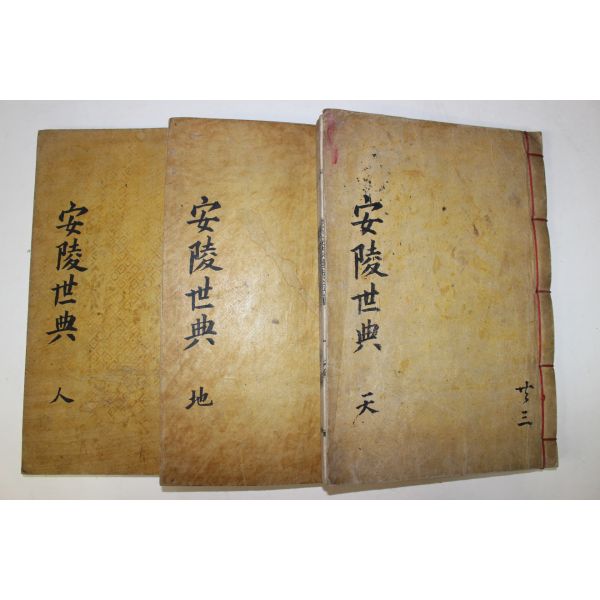 安陵世典
天
共三
安陵世典
地
安陵世典
人